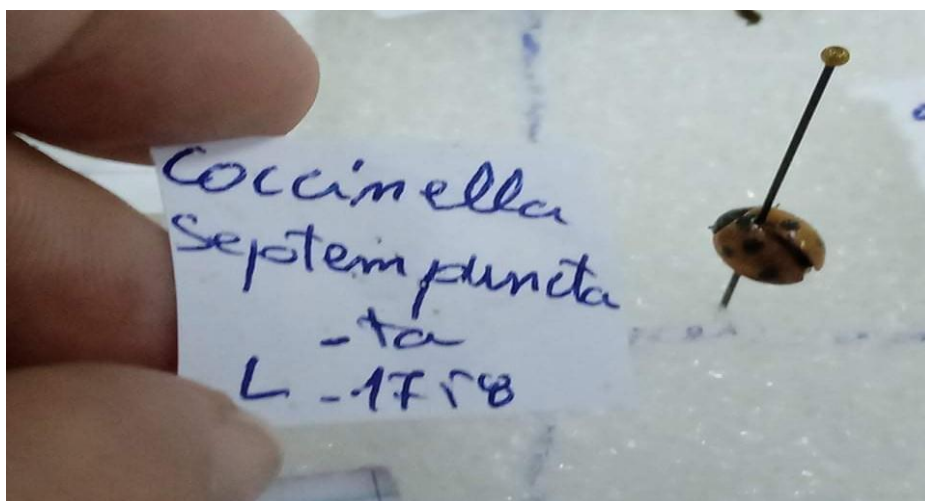 Coccinella
Septempuncta
-ta
L -1758